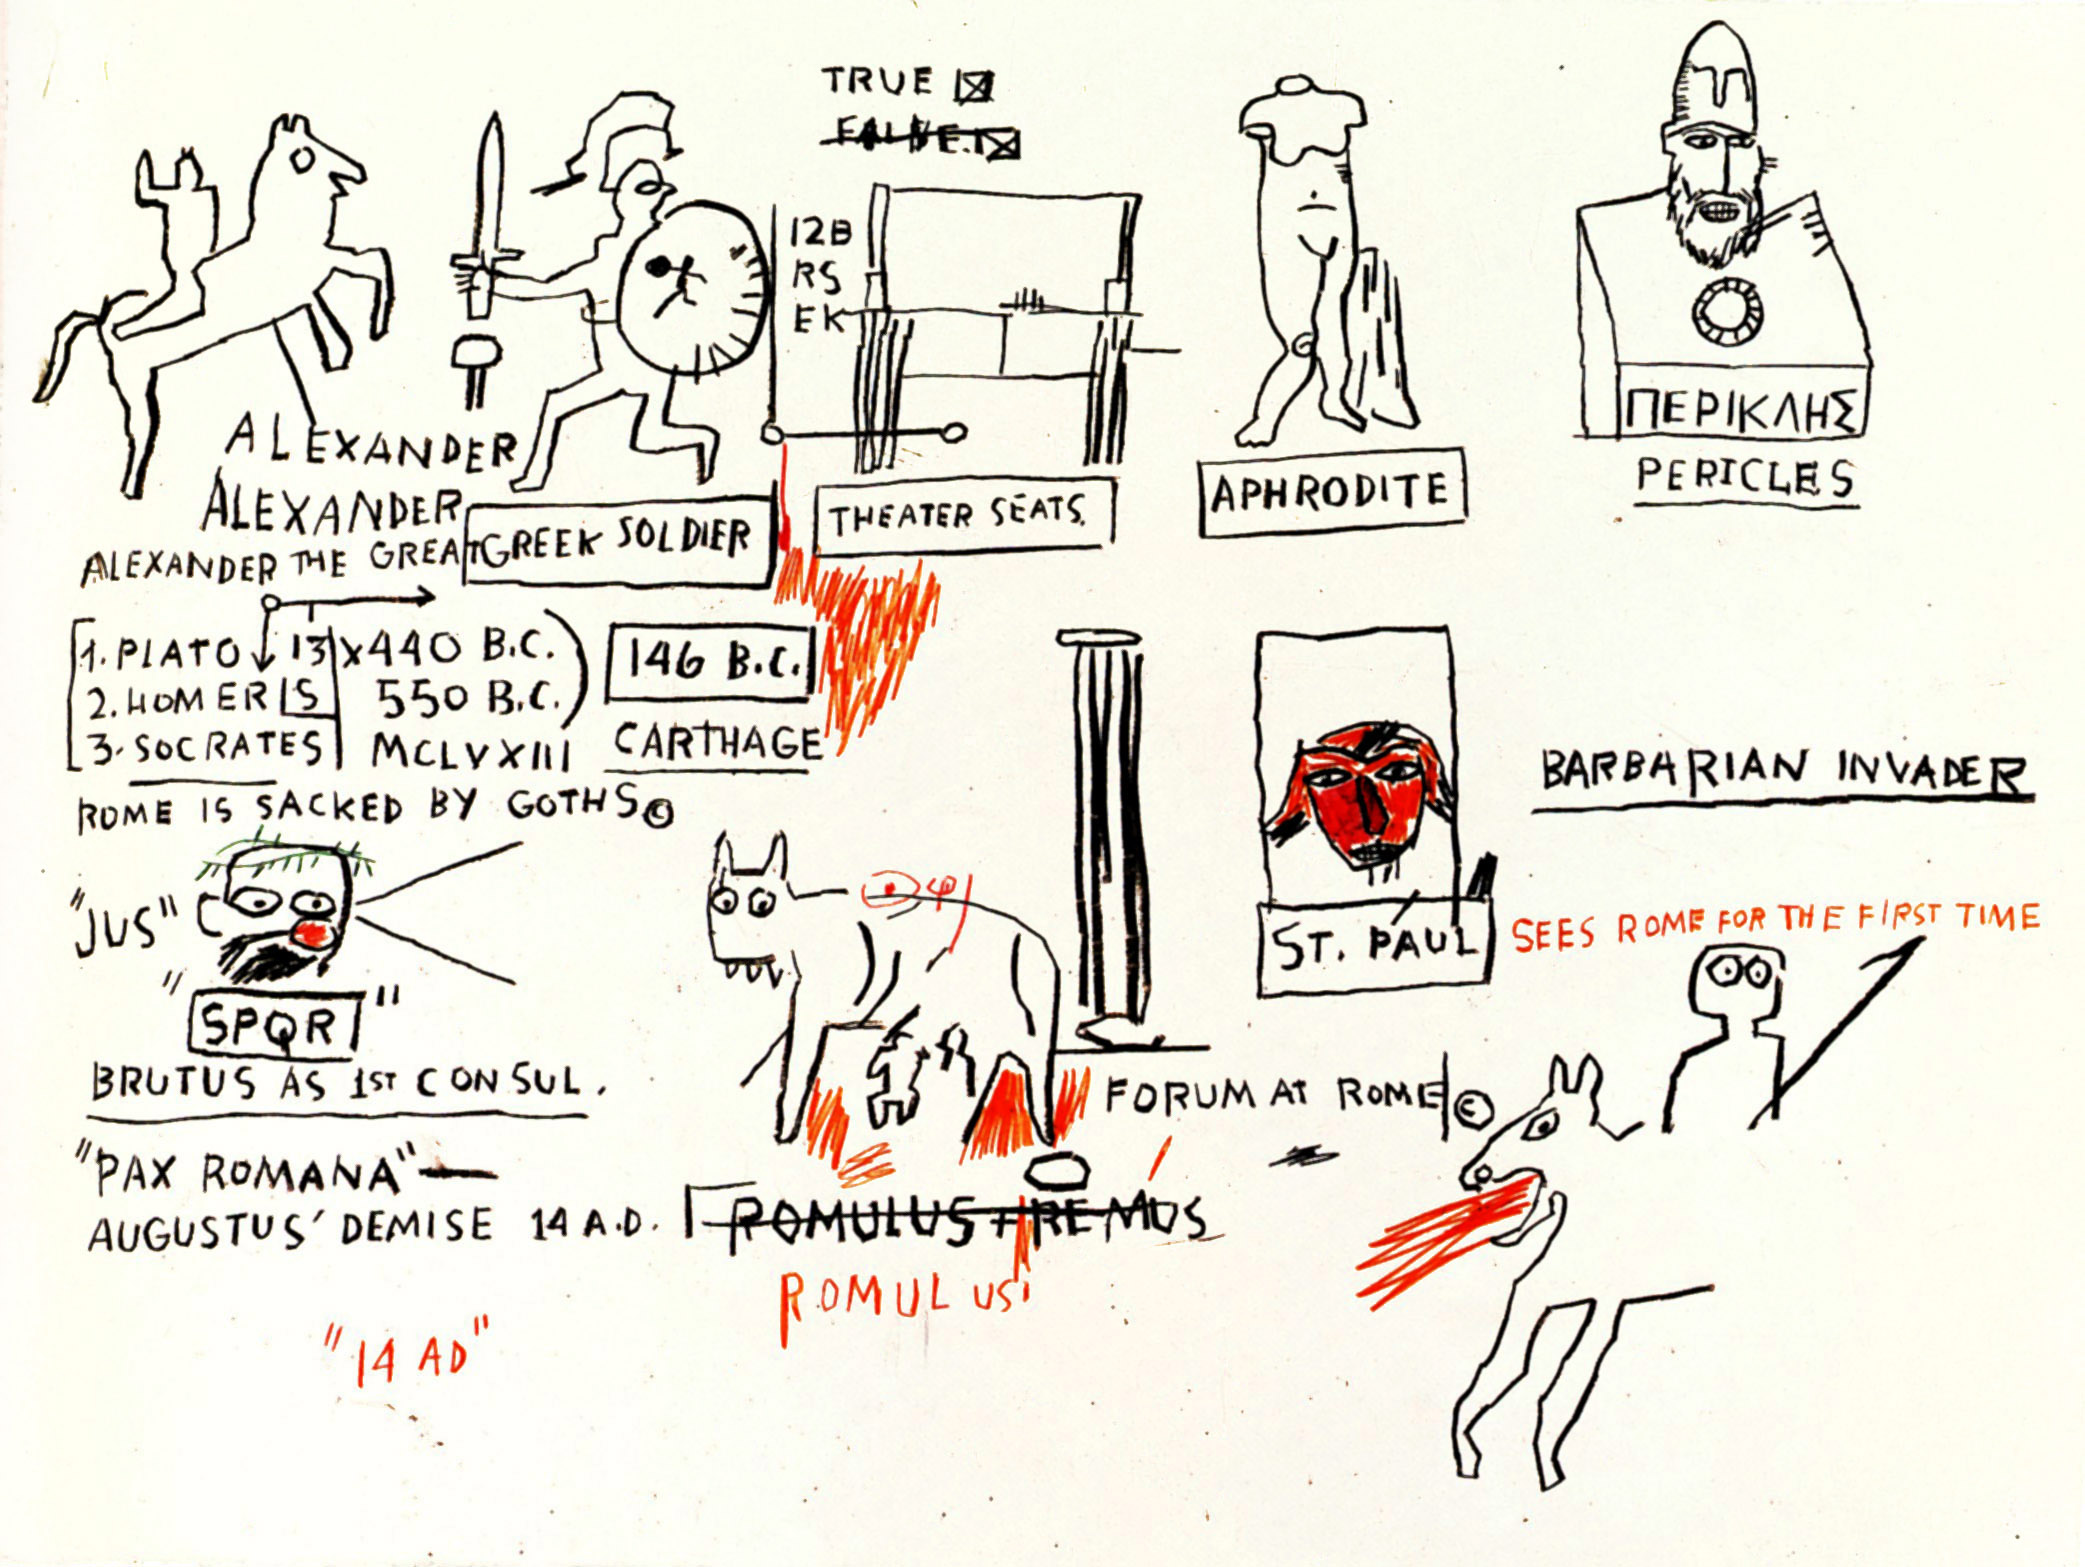 TRUE ☒
FALSE. ☒
12B
RS
EK
ALEXANDER
ALEXANDER
ALEXANDER THE GREAT
GREEK SOLDIER
THEATER SEATS.
APHRODITE
ΠΕΡΙΚΛΗΣ
PERICLES
1. PLATO 13 x 440 B.C.
2. HOMER IS 550 B.C.
3. SOCRATES MCLVXIII
146 B.C.
CARTHAGE
ROME IS SACKED BY GOTHS ©
"JUS"
"SPQR"
BRUTUS AS 1ST CONSUL.
"PAX ROMANA"—
AUGUSTUS' DEMISE 14 A.D.
"14 AD"
ROMULUS + REMUS
ROMULUS
FORUM AT ROME ©
ST. PAUL
BARBARIAN INVADER
SEES ROME FOR THE FIRST TIME